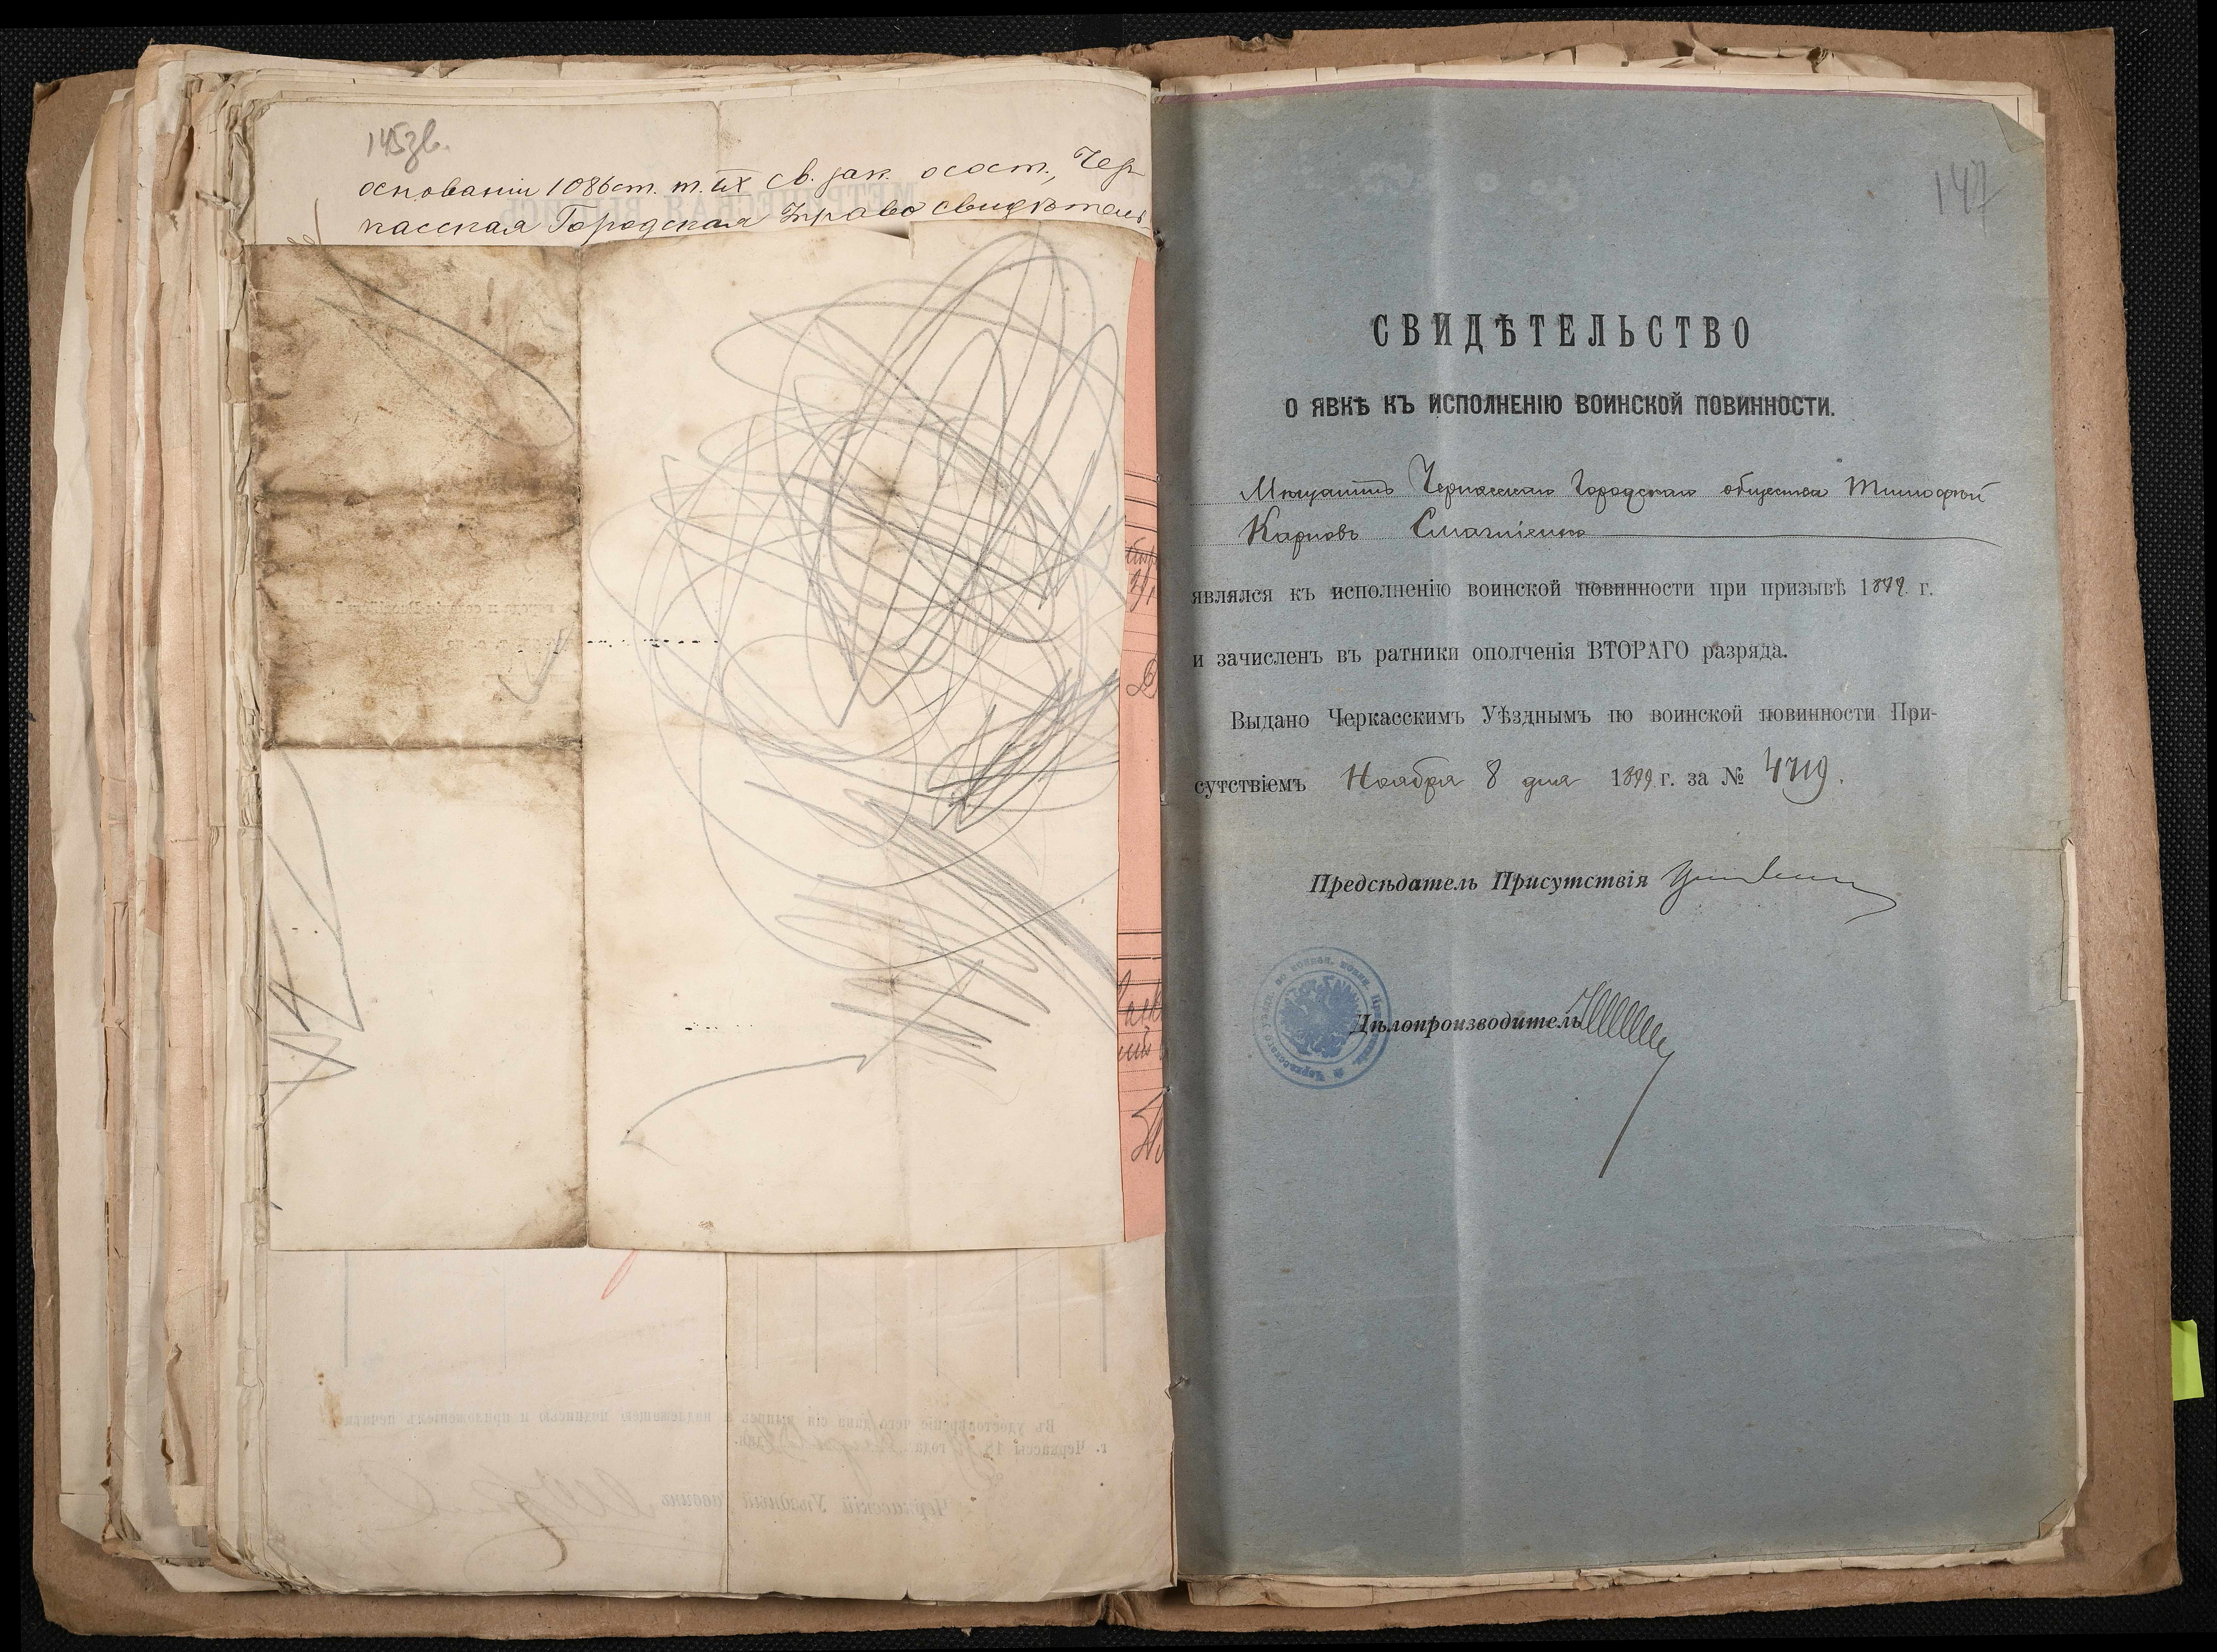 145зв.
основаніи 1086 ст. т. IX св. зак. о сост., Чер-
касская Городская Управа свидѣтель-
147
СВИДѢТЕЛЬСТВО
О ЯВКѢ КЪ ИСПОЛНЕНІЮ ВОИНСКОЙ ПОВИННОСТИ.
Мѣщанинъ Черкасскаго Городскаго общества Тимофей
Карповъ
являлся къ исполненію воинской повинности при призывѣ 1899 г.
и зачисленъ въ ратники ополченія ВТОРАГО разряда.
Выдано Черкасскимъ Уѣзднымъ по воинской повинности При-
сутствіемъ Ноября 8 дня 1899 г. за № 4719.
Предсѣдатель Присутствія
Дѣлопроизводитель
Въ удостовѣреніе чего дана сія выпись съ надлежащею подписью и приложеніемъ печати.
г. Черкассы 18 года
Черкасскій Уѣздный Раввинъ